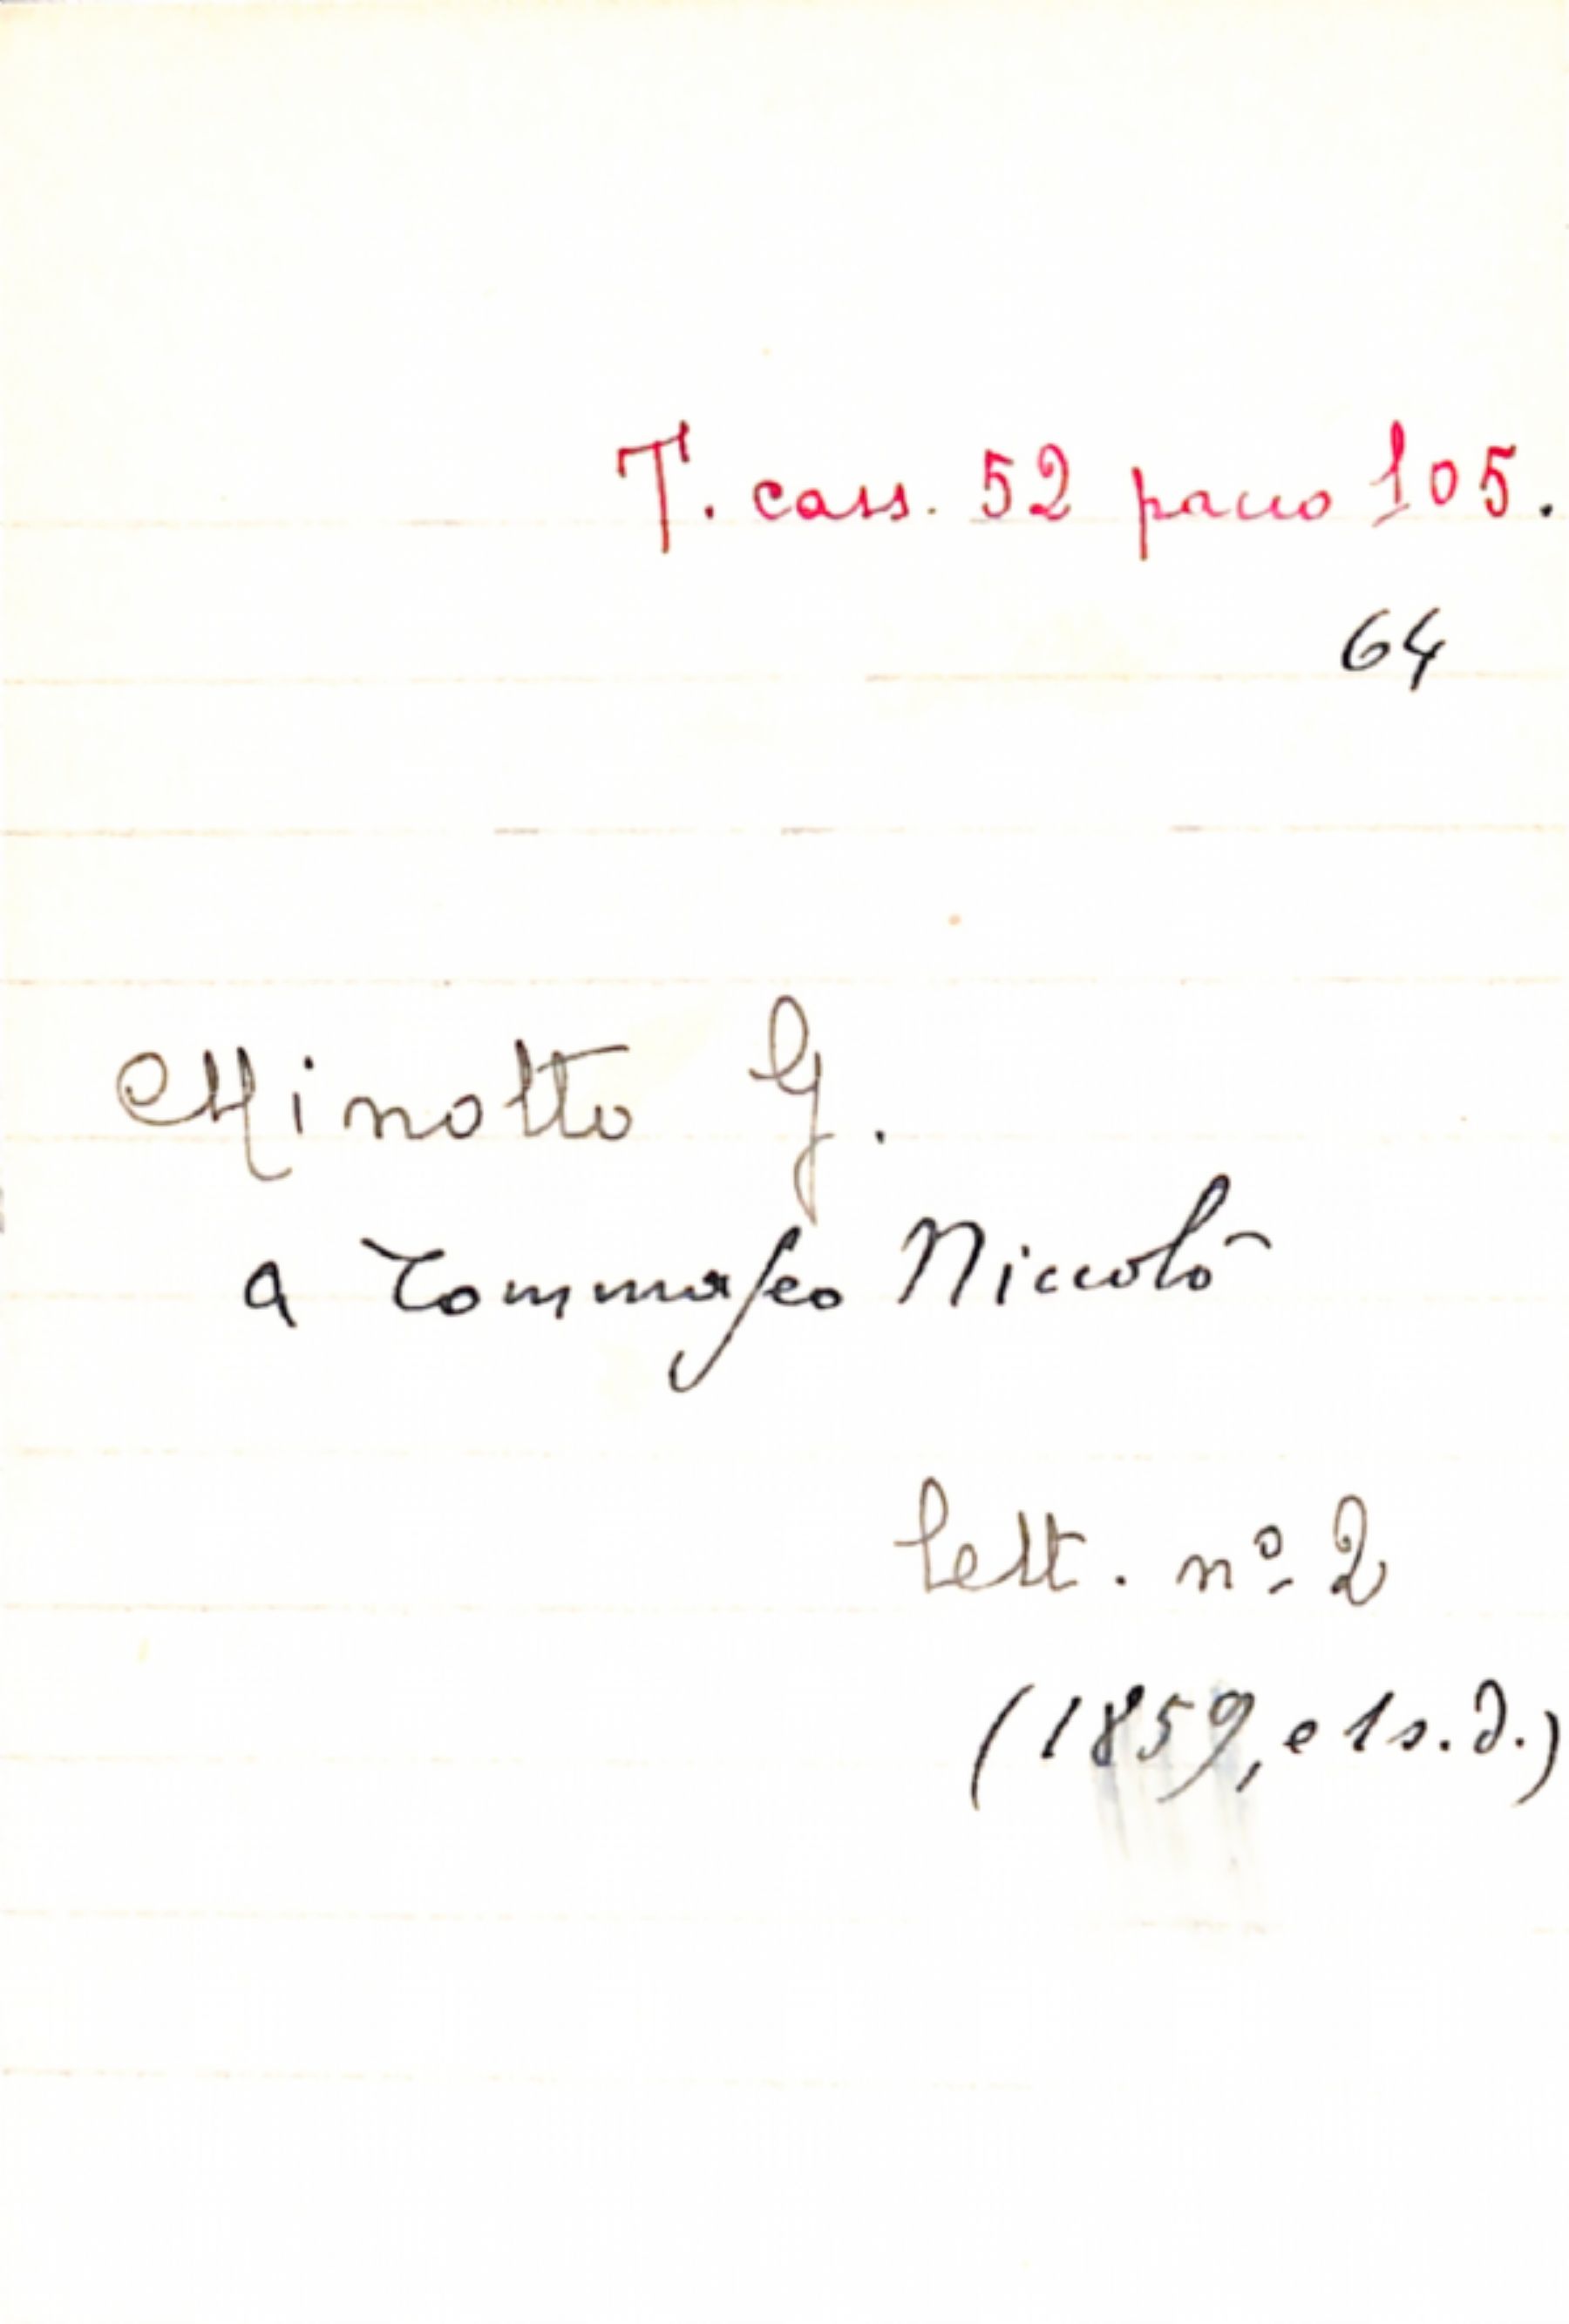 T. cass. 52 pacco 105.
64
Minotto G.
a Tommaseo Niccolò
lett. nº 2
(1859, e 1 s.d.)